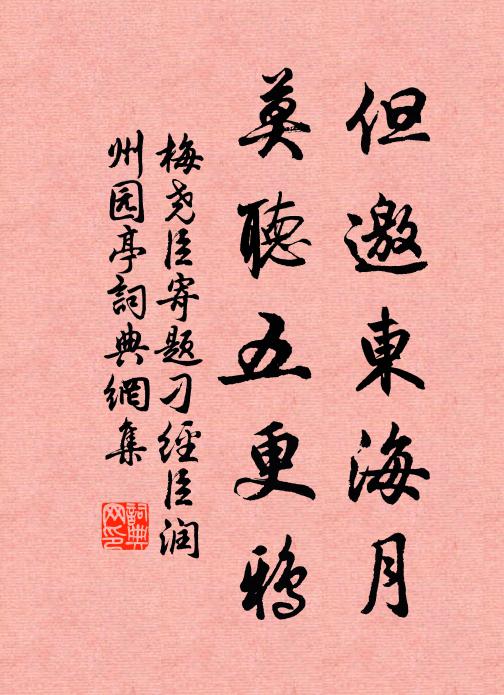 但邀東海月
莫聽五更鴉
梅尧臣寄题刁經臣润
州园亭詞典網集
詞典网印